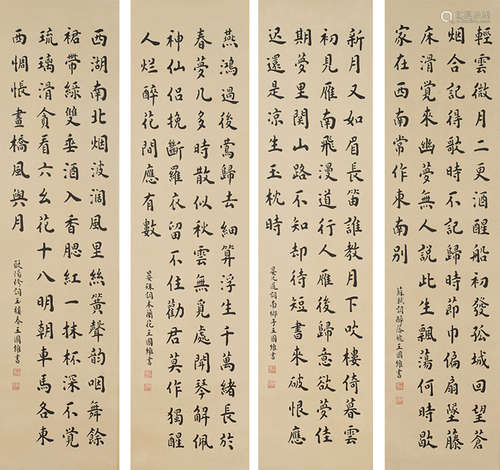 輕雲微月二更酒醒船初發孤城回望蒼
烟合記得歌時不記歸時節巾偏扇墜藤
床滑覺來幽夢無人說此生飄蕩何時歇
家在西南常作東南別
蘇軾詞醉落魄王國維書
新月又如眉長笛誰教月下吹樓倚暮雲
初見雁南飛漫道行人雁後歸意欲夢佳
期夢里關山路不知却待短書來破恨應
遲還是凉生玉枕時
晏几道詞南鄉子王國維書
燕鴻過後鶯歸去細算浮生千萬緒長於
春夢几多時散似秋雲無覓處聞琴解佩
神仙侶挽斷羅衣留不住勸君莫作獨醒
人爛醉花間應有數
晏殊詞木蘭花王國維書
西湖南北烟波濶風里絲簧聲韻咽舞餘
裙帶綠雙垂酒入香腮紅一抹杯深不覺
琉璃滑貪看六幺花十八明朝車馬各東
西惆悵畫橋風與月
歐陽修詞玉樓春王國維書